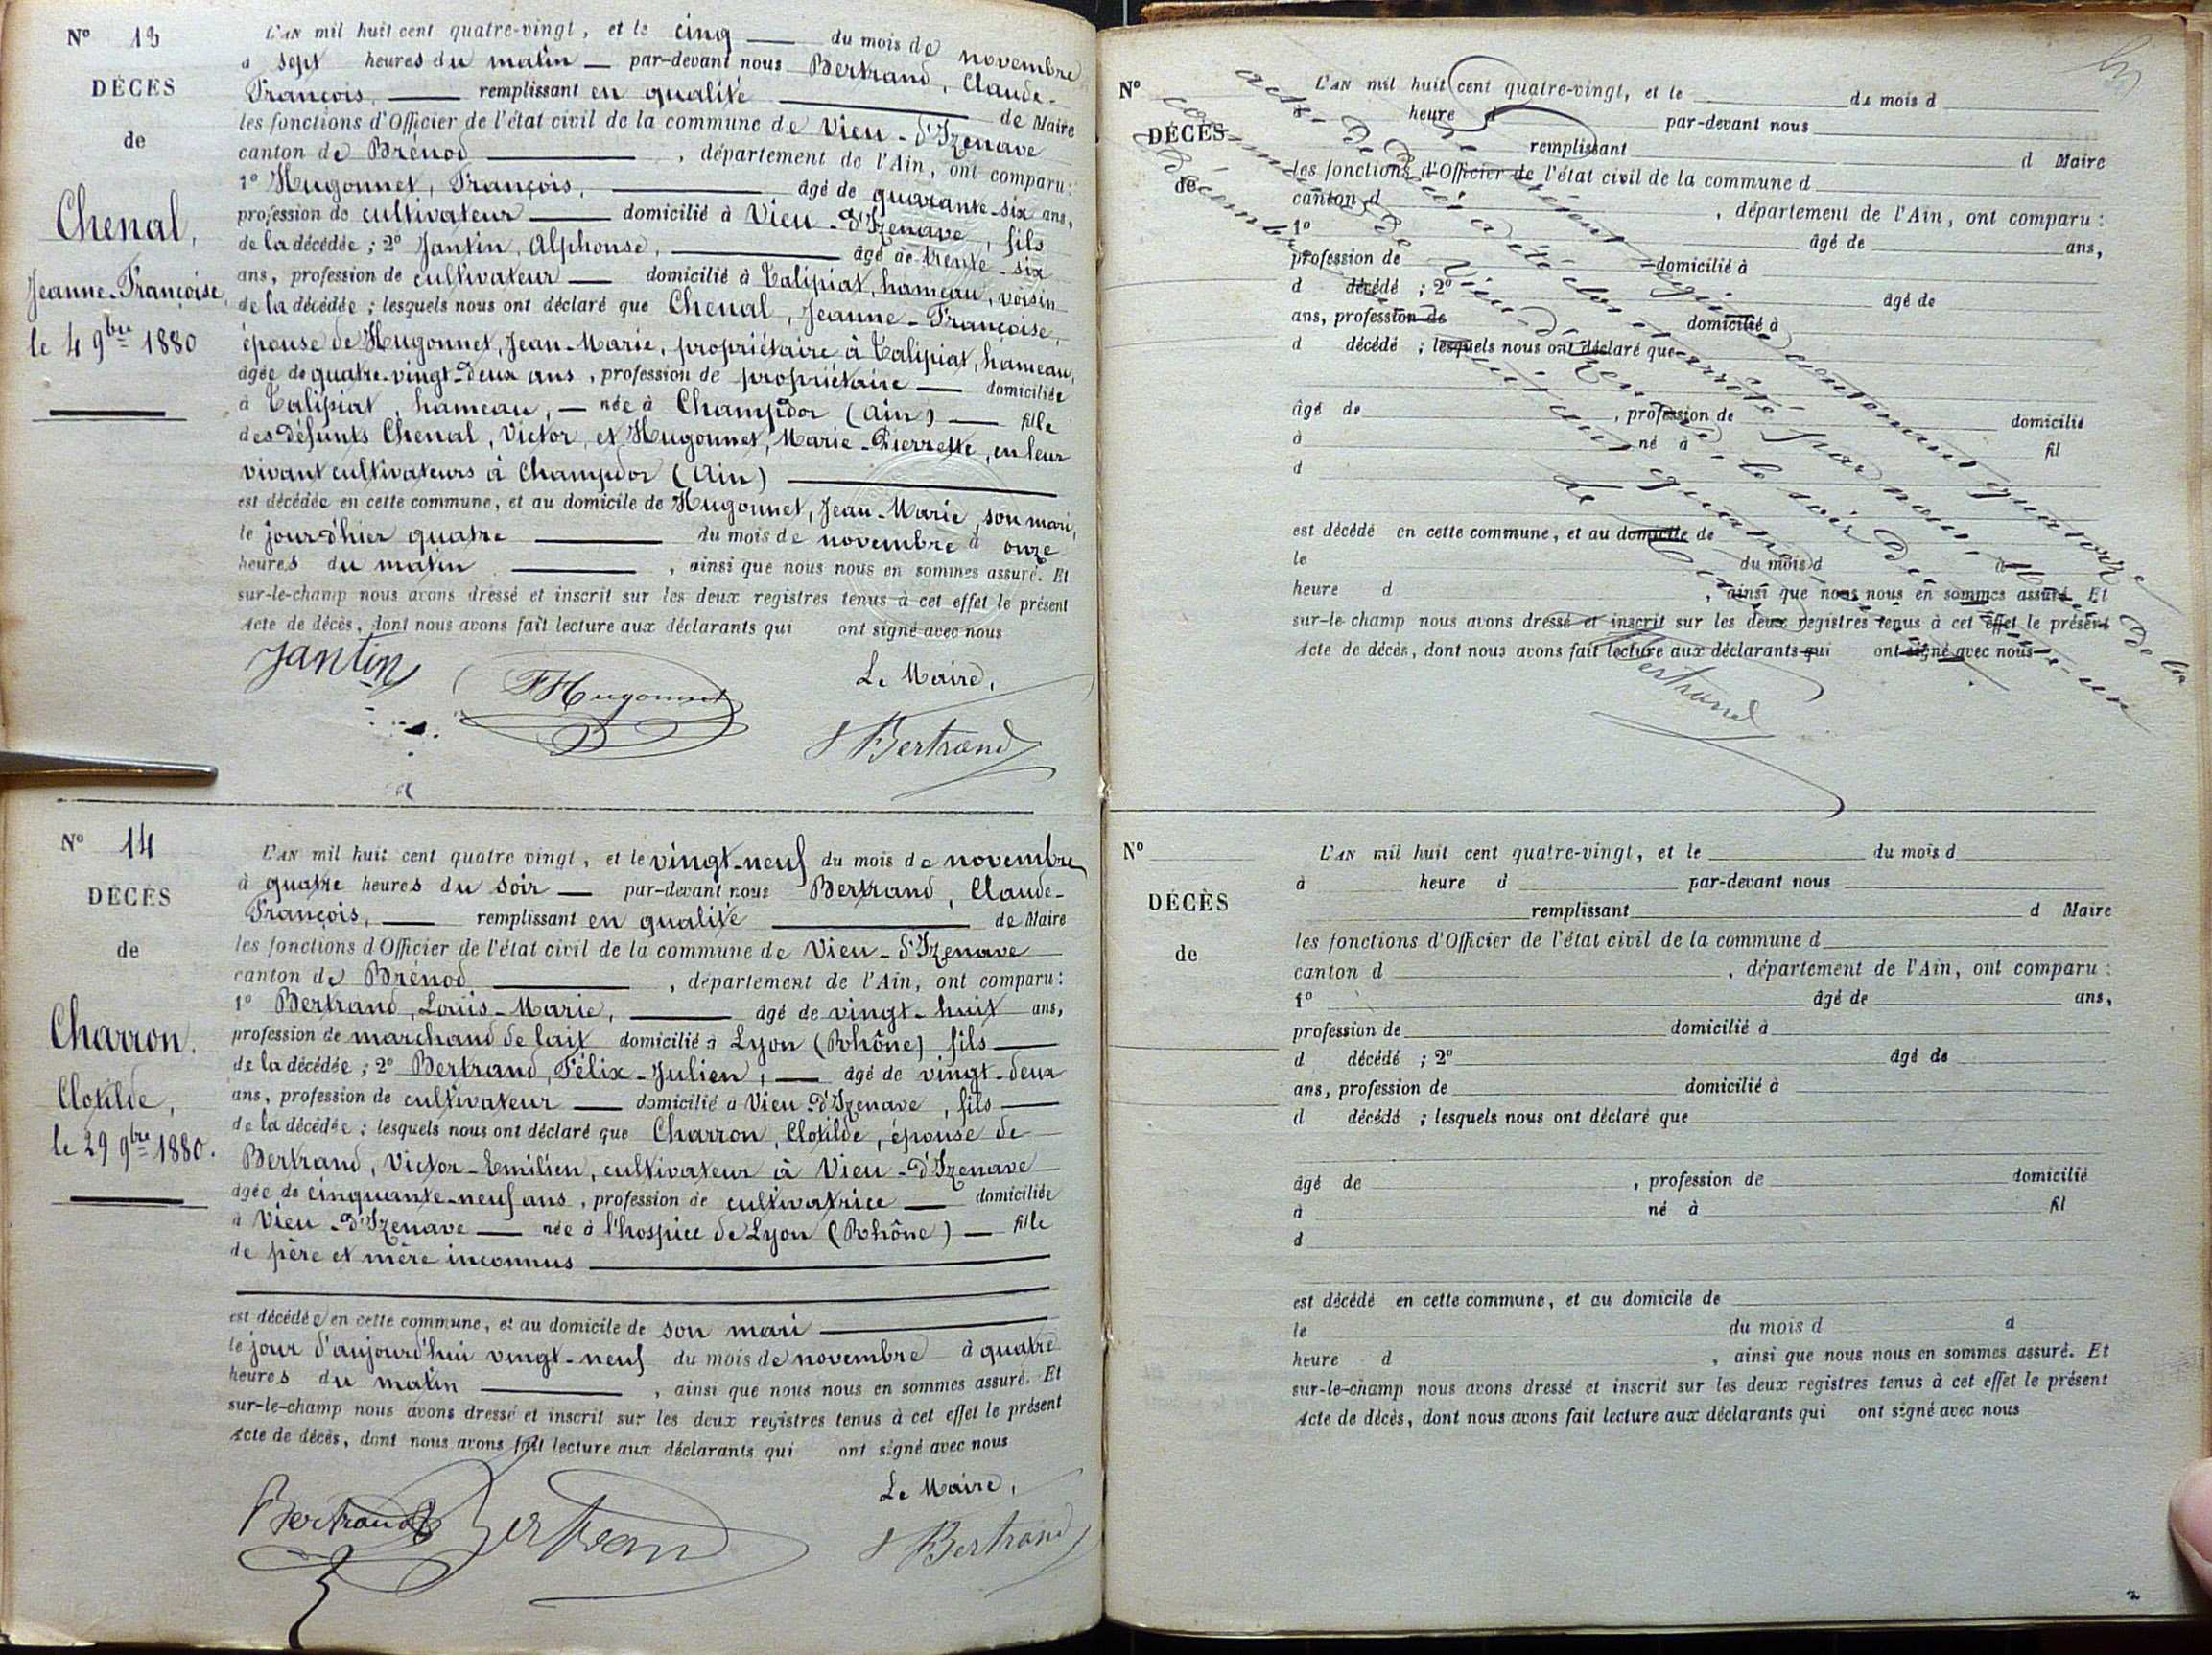 N° 13
DÉCÈS
de
Chenal,
Jeanne-Françoise,
le 4 9bre 1880
L'AN mil huit cent quatre-vingt, et le cinq du mois de novembre
à sept heures du matin par-devant nous Bertrand, Claude-
François, remplissant en qualité de Maire
les fonctions d'Officier de l'état civil de la commune de Vieu-d'Izenave
canton de Brénod, département de l'Ain, ont comparu :
1° Hugonnet, François, âgé de quarante-six ans,
profession de cultivateur domicilié à Vieu-d'Izenave, fils
de la décédée ; 2° Jantin, Alphonse, âgé de trente-six
ans, profession de cultivateur domicilié à Talipiat, hameau, voisin
de la décédée ; lesquels nous ont déclaré que Chenal, Jeanne-Françoise,
épouse de Hugonnet, Jean-Marie, propriétaire à Talipiat, hameau,
âgée de quatre-vingt-deux ans, profession de propriétaire domiciliée
à Talipiat, hameau, née à Champdor (Ain) fille
des défunts Chenal, Victor, et Hugonnet, Marie-Pierrette, en leur
vivant cultivateurs à Champdor (Ain)
est décédée en cette commune, et au domicile de Hugonnet, Jean-Marie, son mari,
le jour d'hier quatre du mois de novembre à onze
heures du matin, ainsi que nous nous en sommes assuré. Et
sur-le-champ nous avons dressé et inscrit sur les deux registres tenus à cet effet le présent
Acte de décès, dont nous avons fait lecture aux déclarants qui ont signé avec nous
Le Maire,
Jantin
F Hugonnet
Bertrand
N° 14
DÉCÈS
de
Charron,
Clotilde,
le 29 9bre 1880.
L'AN mil huit cent quatre vingt, et le vingt-neuf du mois de novembre
à quatre heures du soir par-devant nous Bertrand, Claude-
François, remplissant en qualité de Maire
les fonctions d'Officier de l'état civil de la commune de Vieu-d'Izenave
canton de Brénod, département de l'Ain, ont comparu :
1° Bertrand, Louis-Marie, âgé de vingt-huit ans,
profession de marchand de lait domicilié à Lyon (Rhône) fils
de la décédée ; 2° Bertrand, Félix-Julien, âgé de vingt-deux
ans, profession de cultivateur domicilié à Vieu-d'Izenave, fils
de la décédée ; lesquels nous ont déclaré que Charron, Clotilde, épouse de
Bertrand, Victor-Emilien, cultivateur à Vieu-d'Izenave
âgée de cinquante-neuf ans, profession de cultivatrice domiciliée
à Vieu-d'Izenave née à l'hospice de Lyon (Rhône) fille
de père et mère inconnus
est décédée en cette commune, et au domicile de son mari
le jour d'aujourd'hui vingt-neuf du mois de novembre à quatre
heures du matin, ainsi que nous nous en sommes assuré. Et
sur-le-champ nous avons dressé et inscrit sur les deux registres tenus à cet effet le présent
Acte de décès, dont nous avons fait lecture aux déclarants qui ont signé avec nous
Le Maire,
Bertrand
Bertrand
Bertrand
N°
DÉCÈS
de
L'AN mil huit cent quatre-vingt, et le du mois d
à heure d par-devant nous
remplissant d Maire
les fonctions d'Officier de l'état civil de la commune d
canton d, département de l'Ain, ont comparu :
1° âgé de ans,
profession de domicilié à
d décédé ; 2° âgé de
ans, profession de domicilié à
d décédé ; lesquels nous ont déclaré que
âgé de, profession de domicilié
à né à fil
d
est décédé en cette commune, et au domicile de
le du mois d à
heure d, ainsi que nous nous en sommes assuré. Et
sur-le-champ nous avons dressé et inscrit sur les deux registres tenus à cet effet le présent
Acte de décès, dont nous avons fait lecture aux déclarants qui ont signé avec nous
Le présent registre contenant quatorze
actes de décès a été clos et arrêté par nous, Maire de la
commune de Vieu-d'Izenave, le soir du trente-un
décembre mil huit cent quatre-vingt.
Le Maire,
Bertrand
N°
DÉCÈS
de
L'AN mil huit cent quatre-vingt, et le du mois d
à heure d par-devant nous
remplissant d Maire
les fonctions d'Officier de l'état civil de la commune d
canton d, département de l'Ain, ont comparu :
1° âgé de ans,
profession de domicilié à
d décédé ; 2° âgé de
ans, profession de domicilié à
d décédé ; lesquels nous ont déclaré que
âgé de, profession de domicilié
à né à fil
d
est décédé en cette commune, et au domicile de
le du mois d à
heure d, ainsi que nous nous en sommes assuré. Et
sur-le-champ nous avons dressé et inscrit sur les deux registres tenus à cet effet le présent
Acte de décès, dont nous avons fait lecture aux déclarants qui ont signé avec nous